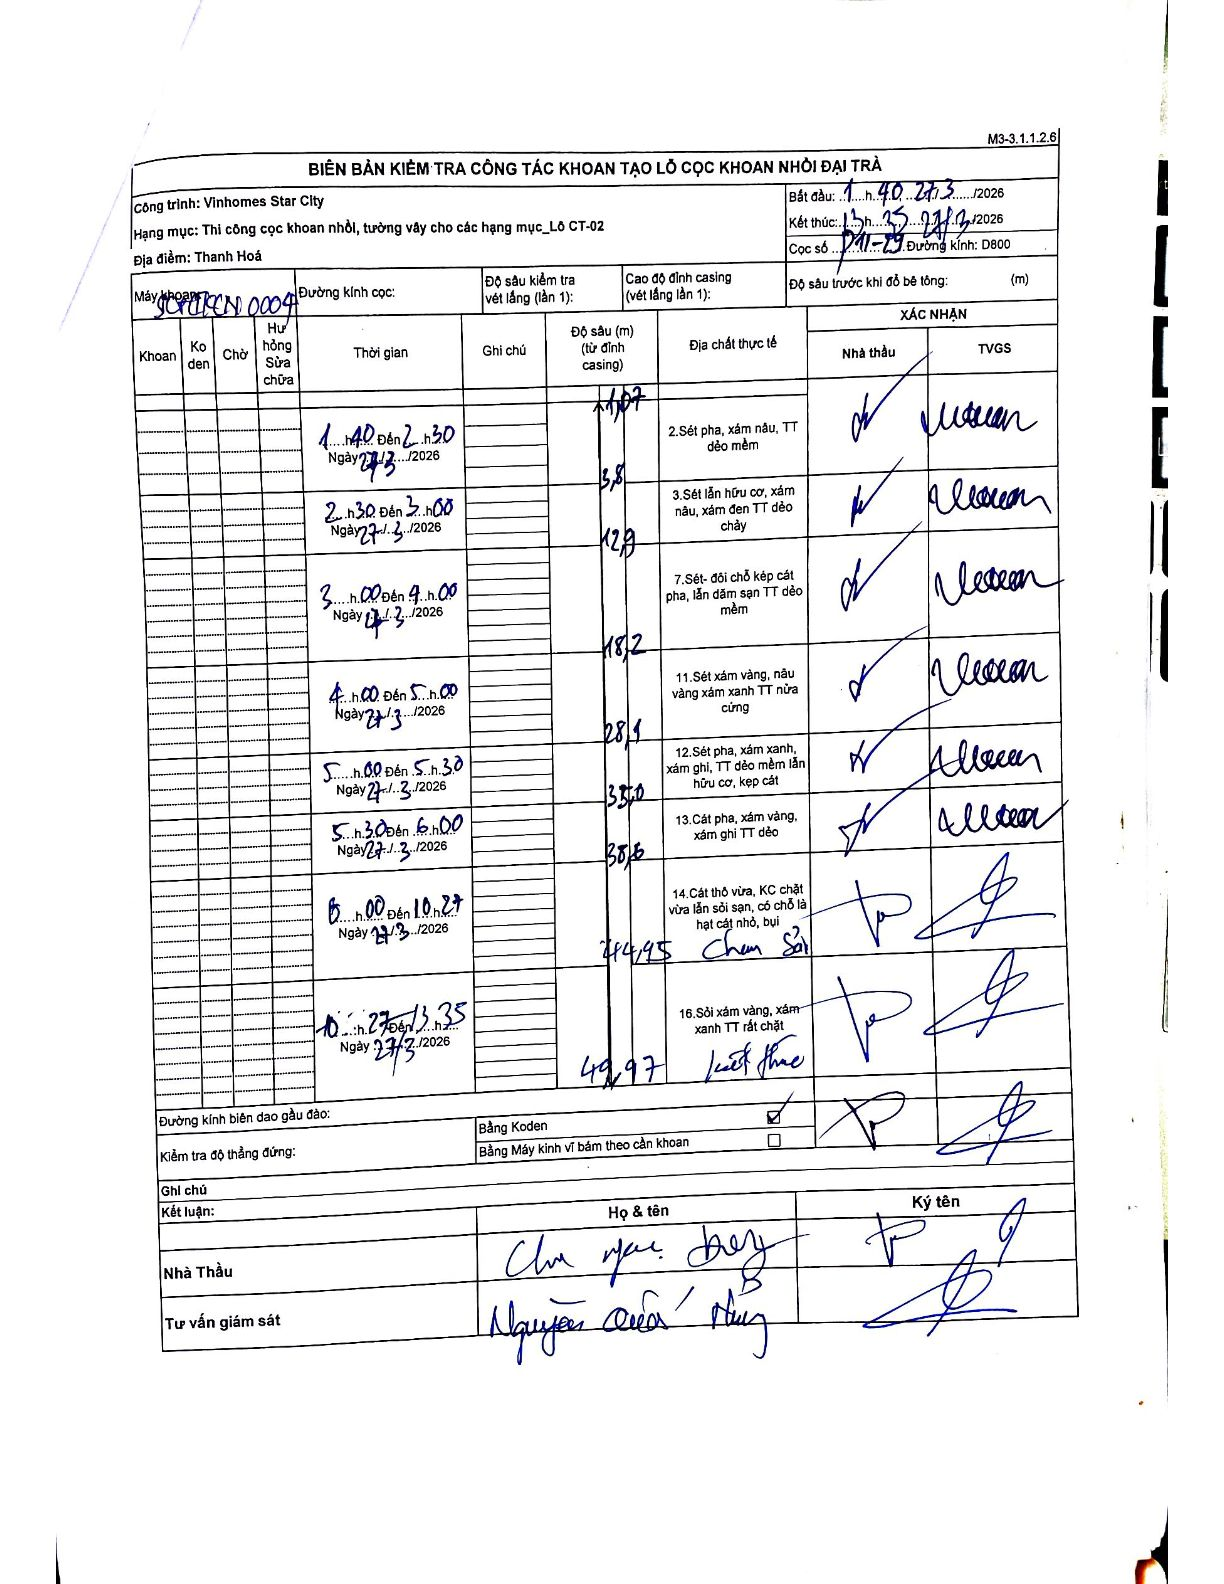 M3-3.1.1.2.6
BIÊN BẢN KIỂM TRA CÔNG TÁC KHOAN TẠO LỖ CỌC KHOAN NHỒI ĐẠI TRÀ
Công trình: Vinhomes Star City
Hạng mục: Thi công cọc khoan nhồi, tường vây cho các hạng mục_Lô CT-02
Địa điểm: Thanh Hoá
Bắt đầu: 1 h 40 27/3/2026
Kết thúc: 13h 35 27/3/2026
Cọc số P11-29 Đường kính: D800
Máy khoan:
Đường kính cọc:
Độ sâu kiểm tra vét lắng (lần 1):
Cao độ đỉnh casing (vét lắng lần 1):
Độ sâu trước khi đổ bê tông: (m)
Khoan
Ko đen
Chờ
Hư hỏng Sửa chữa
Thời gian
Ghi chú
Độ sâu (m) (từ đỉnh casing)
Địa chất thực tế
XÁC NHẬN
Nhà thầu
TVGS
1,07
1 h 40 Đến 2 h 30
Ngày 27/3/2026
2.Sét pha, xám nâu, TT dẻo mềm
3,8
2 h 30 Đến 3 h 00
Ngày 27/3/2026
3.Sét lẫn hữu cơ, xám nâu, xám đen TT dẻo chảy
12,9
3 h 00 Đến 4 h 00
Ngày 27/3/2026
7.Sét- đôi chỗ kép cát pha, lẫn dăm sạn TT dẻo mềm
18,2
4 h 00 Đến 5 h 00
Ngày 27/3/2026
11.Sét xám vàng, nâu vàng xám xanh TT nửa cứng
28,1
5 h 00 Đến 5 h 30
Ngày 27/3/2026
12.Sét pha, xám xanh, xám ghi, TT dẻo mềm lẫn hữu cơ, kẹp cát
5 h 30 Đến 6 h 00
Ngày 27/3/2026
13.Cát pha, xám vàng, xám ghi TT dẻo
6 h 00 Đến 10 h 27
Ngày 27/3/2026
14.Cát thô vừa, KC chặt vừa lẫn sỏi sạn, có chỗ là hạt cát nhỏ, bụi
44,95
Chạm Sỏi
10 h 27 Đến 13 h 35
Ngày 27/3/2026
16.Sỏi xám vàng, xám xanh TT rất chặt
49,97
kết thúc
Đường kính biên dao gầu đào:
Kiểm tra độ thẳng đứng:
Bằng Koden
Bằng Máy kinh vĩ bám theo cần khoan
Ghi chú
Kết luận:
Họ & tên
Ký tên
Nhà Thầu
Tư vấn giám sát
Nguyễn Quốc